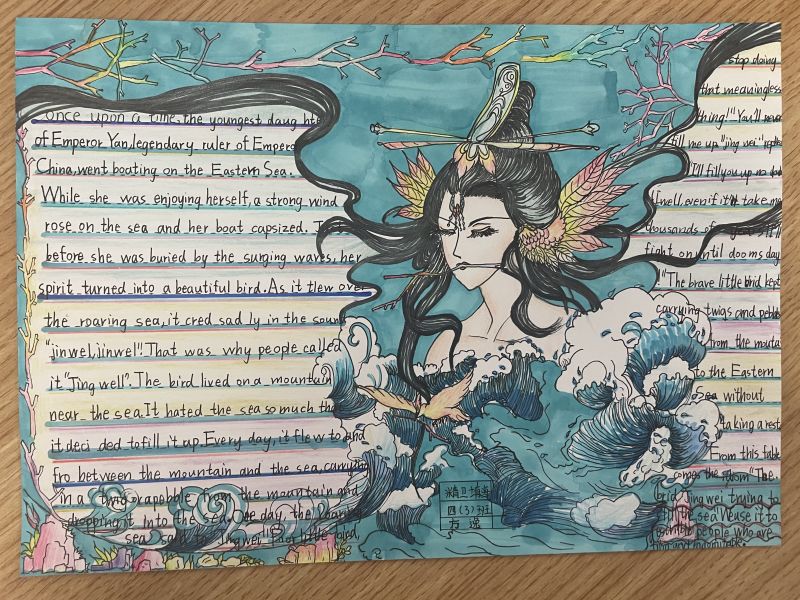 once upon a time, the youngest daug hter
of Emperor Yan, legendary ruler of Emperor
China, went boating on the Eastern Sea.
While she was enjoying herself, a strong wind
rose on the sea and her boat capsized. Just
before she was buried by the surging waves, her
spirit turned into a beautiful bird. As it tlew over
the roaring sea, it cred sad ly in the soun
"jinwel, jinwel". That was why people called
it "Jing well". The bird lived on a mountain
near the sea. It hated the sea so much tha
it deci ded to fill it up. Every day, it flew to and
fro between the mountain and the sea, carrying
in a from the mountain and
dropping it into the sea. One day, the
sea said to Jingwei little bird,
stop doing
that meaningless
thing!" You'll never
fill me up "jing wei"
I'll fill you up no
well even if it'll take me
thousands of
fight on until dooms day
"The brave little bird kept
carrying twigs and
from the mounta
to the Eastern
Sea without
taking a rest
From this fable
comes the idiom "The
brid Jingwei trying to
fill the sea". We use it to
the people who are
精卫填海
四(3)班
方逸